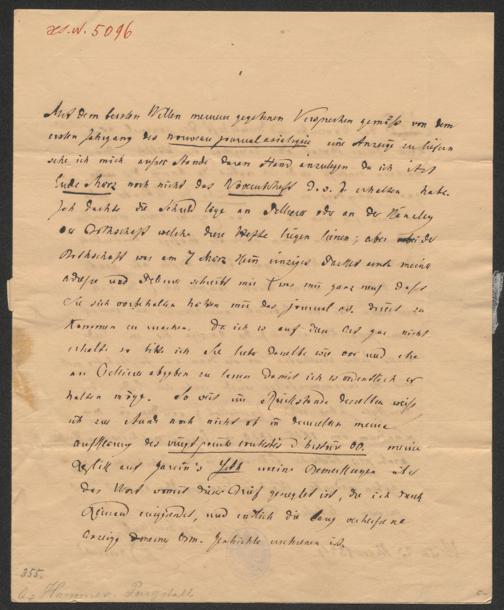 H.N. 5096
Mit dem besten Willen meinem gegebenen Versprechen gemäß von dem
ersten Jahrgang des nouveau journal asiatique eine Anzeige zu liefern
sehe ich mich außer Stande daran Hand anzulegen da ich itzt
Ende März noch nicht das erhalten habe.
Ich dachte die Schuld läge an oder an der Kanzley
der Bothschaft welche diese Hefte liegen ließen; aber bei der
Bothschaft war am 7 März kein einziges unter meiner
Adresse und schreibt mir was mir ganz neu daß
Sie sich vorbehalten hätten mir das journal as. direct zu
kommen zu machen. Da ich es auf diese Art gar nicht
erhalte so bitte ich Sie lieber dasselbe wie vor und ehe
an abgeben zu lassen damit ich es ordentlich er
halten möge. So weit im Rückstande desselben weiß
ich zur Stunde noch nicht ob in demselben meine
Aufklärung des vingt points contestés d'histoire oo. meine
Replik auf meine Bemerkungen über
das Wort womit dieser Brief gesiegelt ist, die ich durch
Reinaud eingesendet, und endlich die lang verheißene
Anzeige meiner Osm. Geschichte erschienen ist.
355.
Hammer-Purgstall